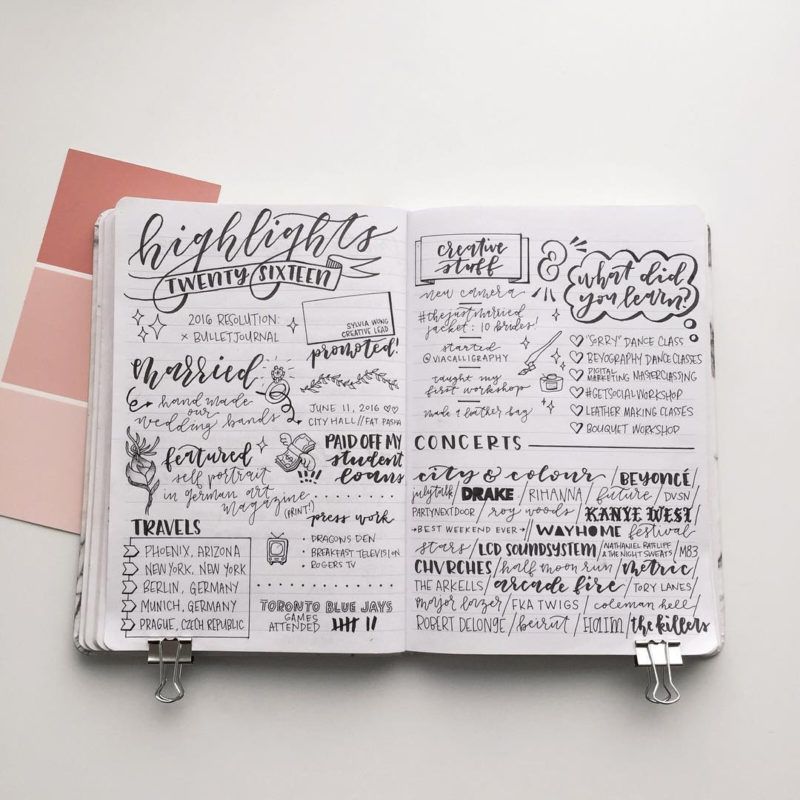 highlights
TWENTY SIXTEEN
2016 RESOLUTION:
× BULLETJOURNAL
SYLVIA WONG
CREATIVE LEAD
promoted!
married
handmade
our
wedding bands
JUNE 11, 2016 ♡♡
CITY HALL // FAT PASHA
featured
self portrait
in german art
magazine
(PRINT!)
PAID OFF MY
student
loans
TRAVELS
PHOENIX, ARIZONA
NEW YORK, NEW YORK
BERLIN, GERMANY
MUNICH, GERMANY
PRAGUE, CZECH REPUBLIC
press work
• DRAGONS DEN
• BREAKFAST TELEVISION
• ROGERS TV
TORONTO BLUE JAYS
GAMES
ATTENDED
creative
stuff
&
what did
you learn?
new camera
#thejustmarried
jacket: 10 brides!
started
@VIACALLIGRAPHY
taught my
first workshop
made a leather bag
♡ "SORRY" DANCE CLASS
♡ BEYOGRAPHY DANCE CLASSES
♡ DIGITAL
MARKETING MASTERCLASSING
♡ #GETSOCIALWORKSHOP
♡ LEATHER MAKING CLASSES
♡ BOUQUET WORKSHOP
CONCERTS
city & colour / BEYONCÉ /
july talk / DRAKE / RIHANNA / future / DVSN /
PARTYNEXTDOOR / roy woods / KANYE WEST /
→BEST WEEKEND EVER→ // WAYHOME festival
stars / LCD SOUNDSYSTEM / NATHANIEL RATELIFF & THE NIGHT SWEATS / M83
CHVRCHES / half moon run / metric /
THE ARKELLS / arcade fire / TORY LANES /
major lazer / FKA TWIGS / coleman hell /
ROBERT DELONGE / beirut / HAIM / the killers